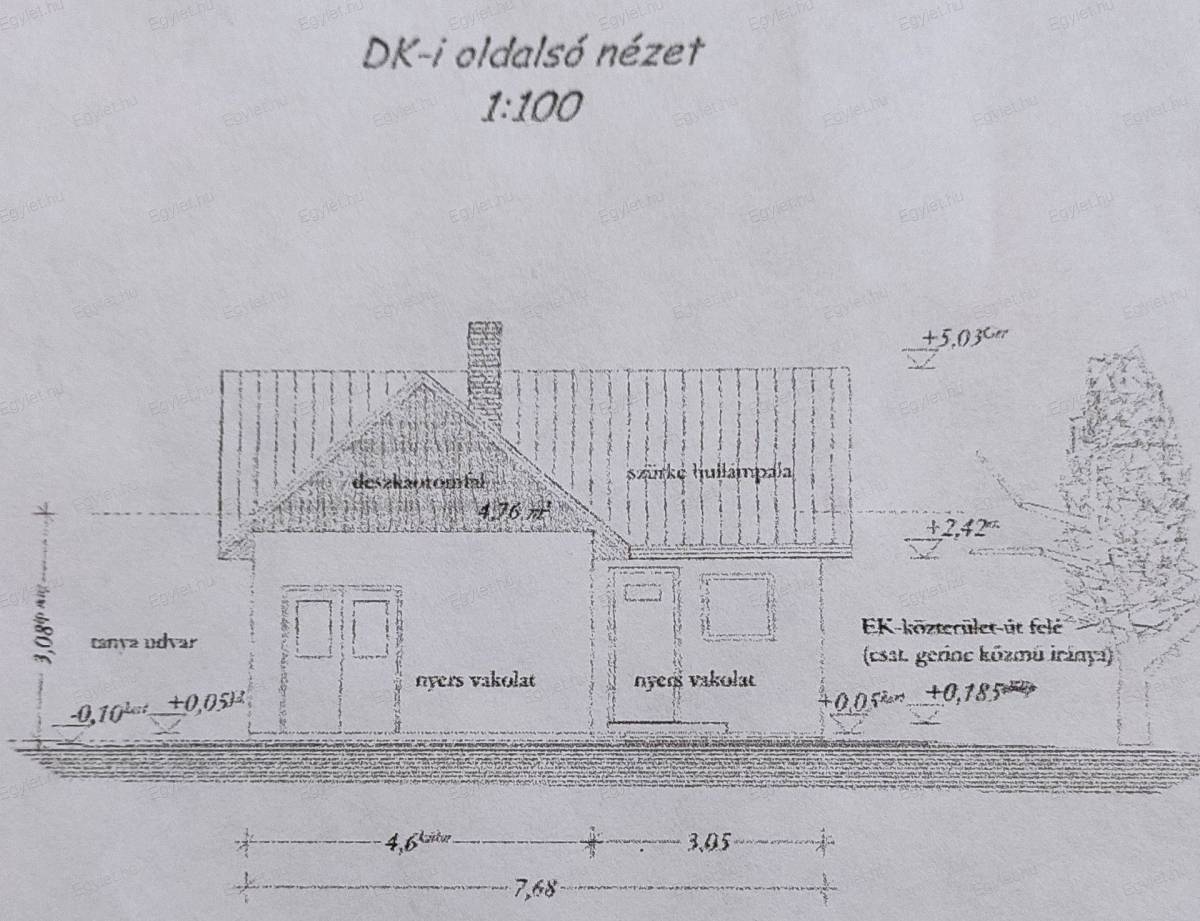 DK-i oldalsó nézet
1:100
+5,03
deszkaoromfal
szürke hullámpala
4,76 m²
+2,42
3,08
tanya udvar
EK-közterület-út felé
(csat. gerinc közmű iránya)
nyers vakolat
nyers vakolat
-0,10
+0,05
+0,05
+0,185
4,6
3,05
7,68
Egylet.hu